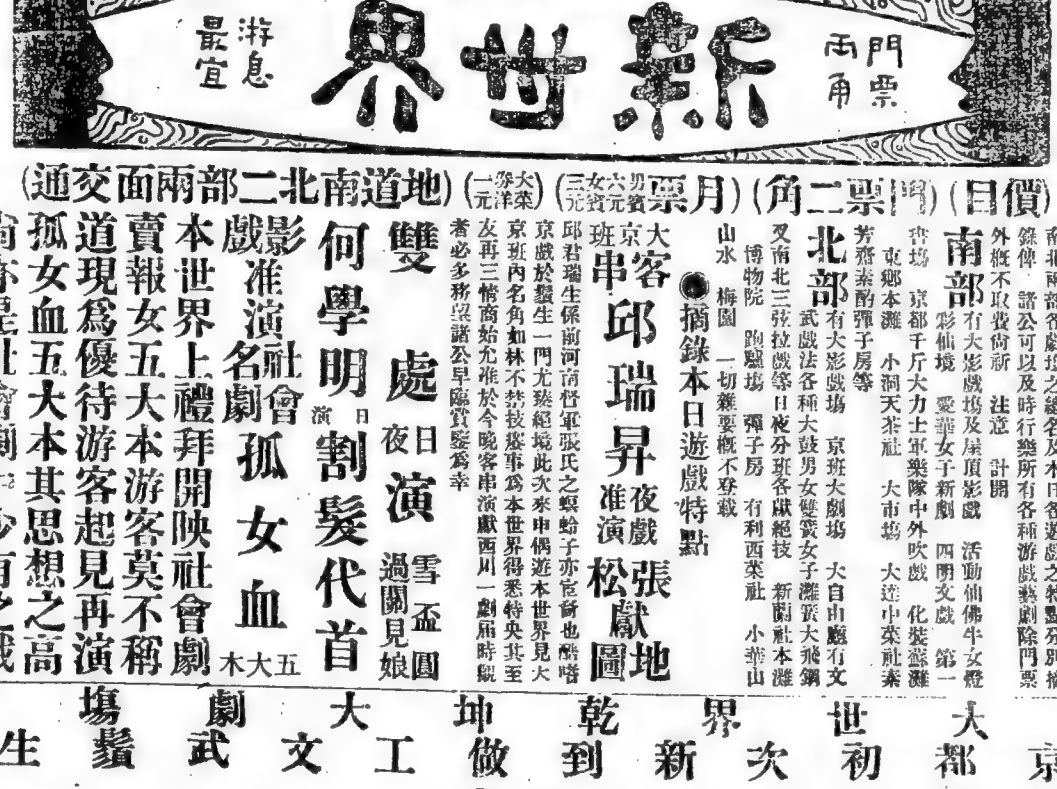 門票
兩角
新世界
游息
最宜
(價目)(門票二角)(月票男賓六元女賓三元)(大菜券洋一元)(地道南北二部兩面交通)
錄俾　諸公可以及時行樂所有各種游戲藝劇除門票
外概不取費尙祈　注意　計開
南部有大影戲塲及屋頂影戲　活動仙佛牛女燈
彩仙境　愛華女子新劇　四明文戲　第一
書塲　京都千斤大力士軍樂隊中外吹戲　化裝蘇灘
東鄉本灘　小洞天茶社　大市塲　大達中菜社素
芳齋素酌彈子房等
北部有大影戲塲　京班大劇塲　大自由廳有文
武戲法各種大鼓男女雙簧女子灘簧大飛鋼
叉南北三弦拉戲等日夜分班各獻絕技　新蘭社本灘
博物院　跑驢塲　彈子房　有利西菜社　小華山
山水　梅園　一切雜耍概不登載
摘錄本日遊戲特點
大京班客串邱瑞昇夜戲准演張松獻地圖
邱君瑞生係前河南督軍張氏之螟蛉子亦宦裔也酷嗜
京戲於鬚生一門尤臻絕境此次來申偶遊本世界見大
京班內名角如林不禁技癢事爲本世界得悉特央其至
友再三情商始允准於今晚客串演獻西川一劇屆時觀
者必多務望諸公早臨賞鑒爲幸
雙處日夜演雪盃圓過關見娘
何學明日演割髮代首
影戲准演社會名劇孤女血五大本
本世界上禮拜開映社會劇
賣報女五大本游客莫不稱
道現爲優待游客起見再演
孤女血五大本其思想之高
大世界乾坤大劇塲
京都初次新到做工文武鬚生